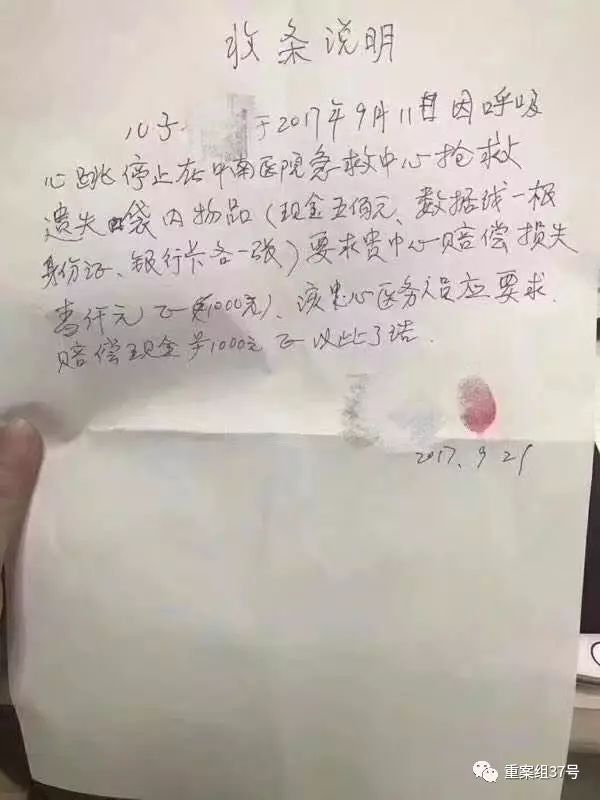 收条说明
儿子
于2017年9月11日因呼吸
心跳停止在中南医院急救中心抢救
遗失袋内物品(现金五佰元、数据线一根
身份证、银行卡各一张)要求贵中心赔偿损失
壹仟元正(1000元)、该中心医务人员应要求.
赔偿现金1000元正以此了结.
2017.9 21
重案组37号